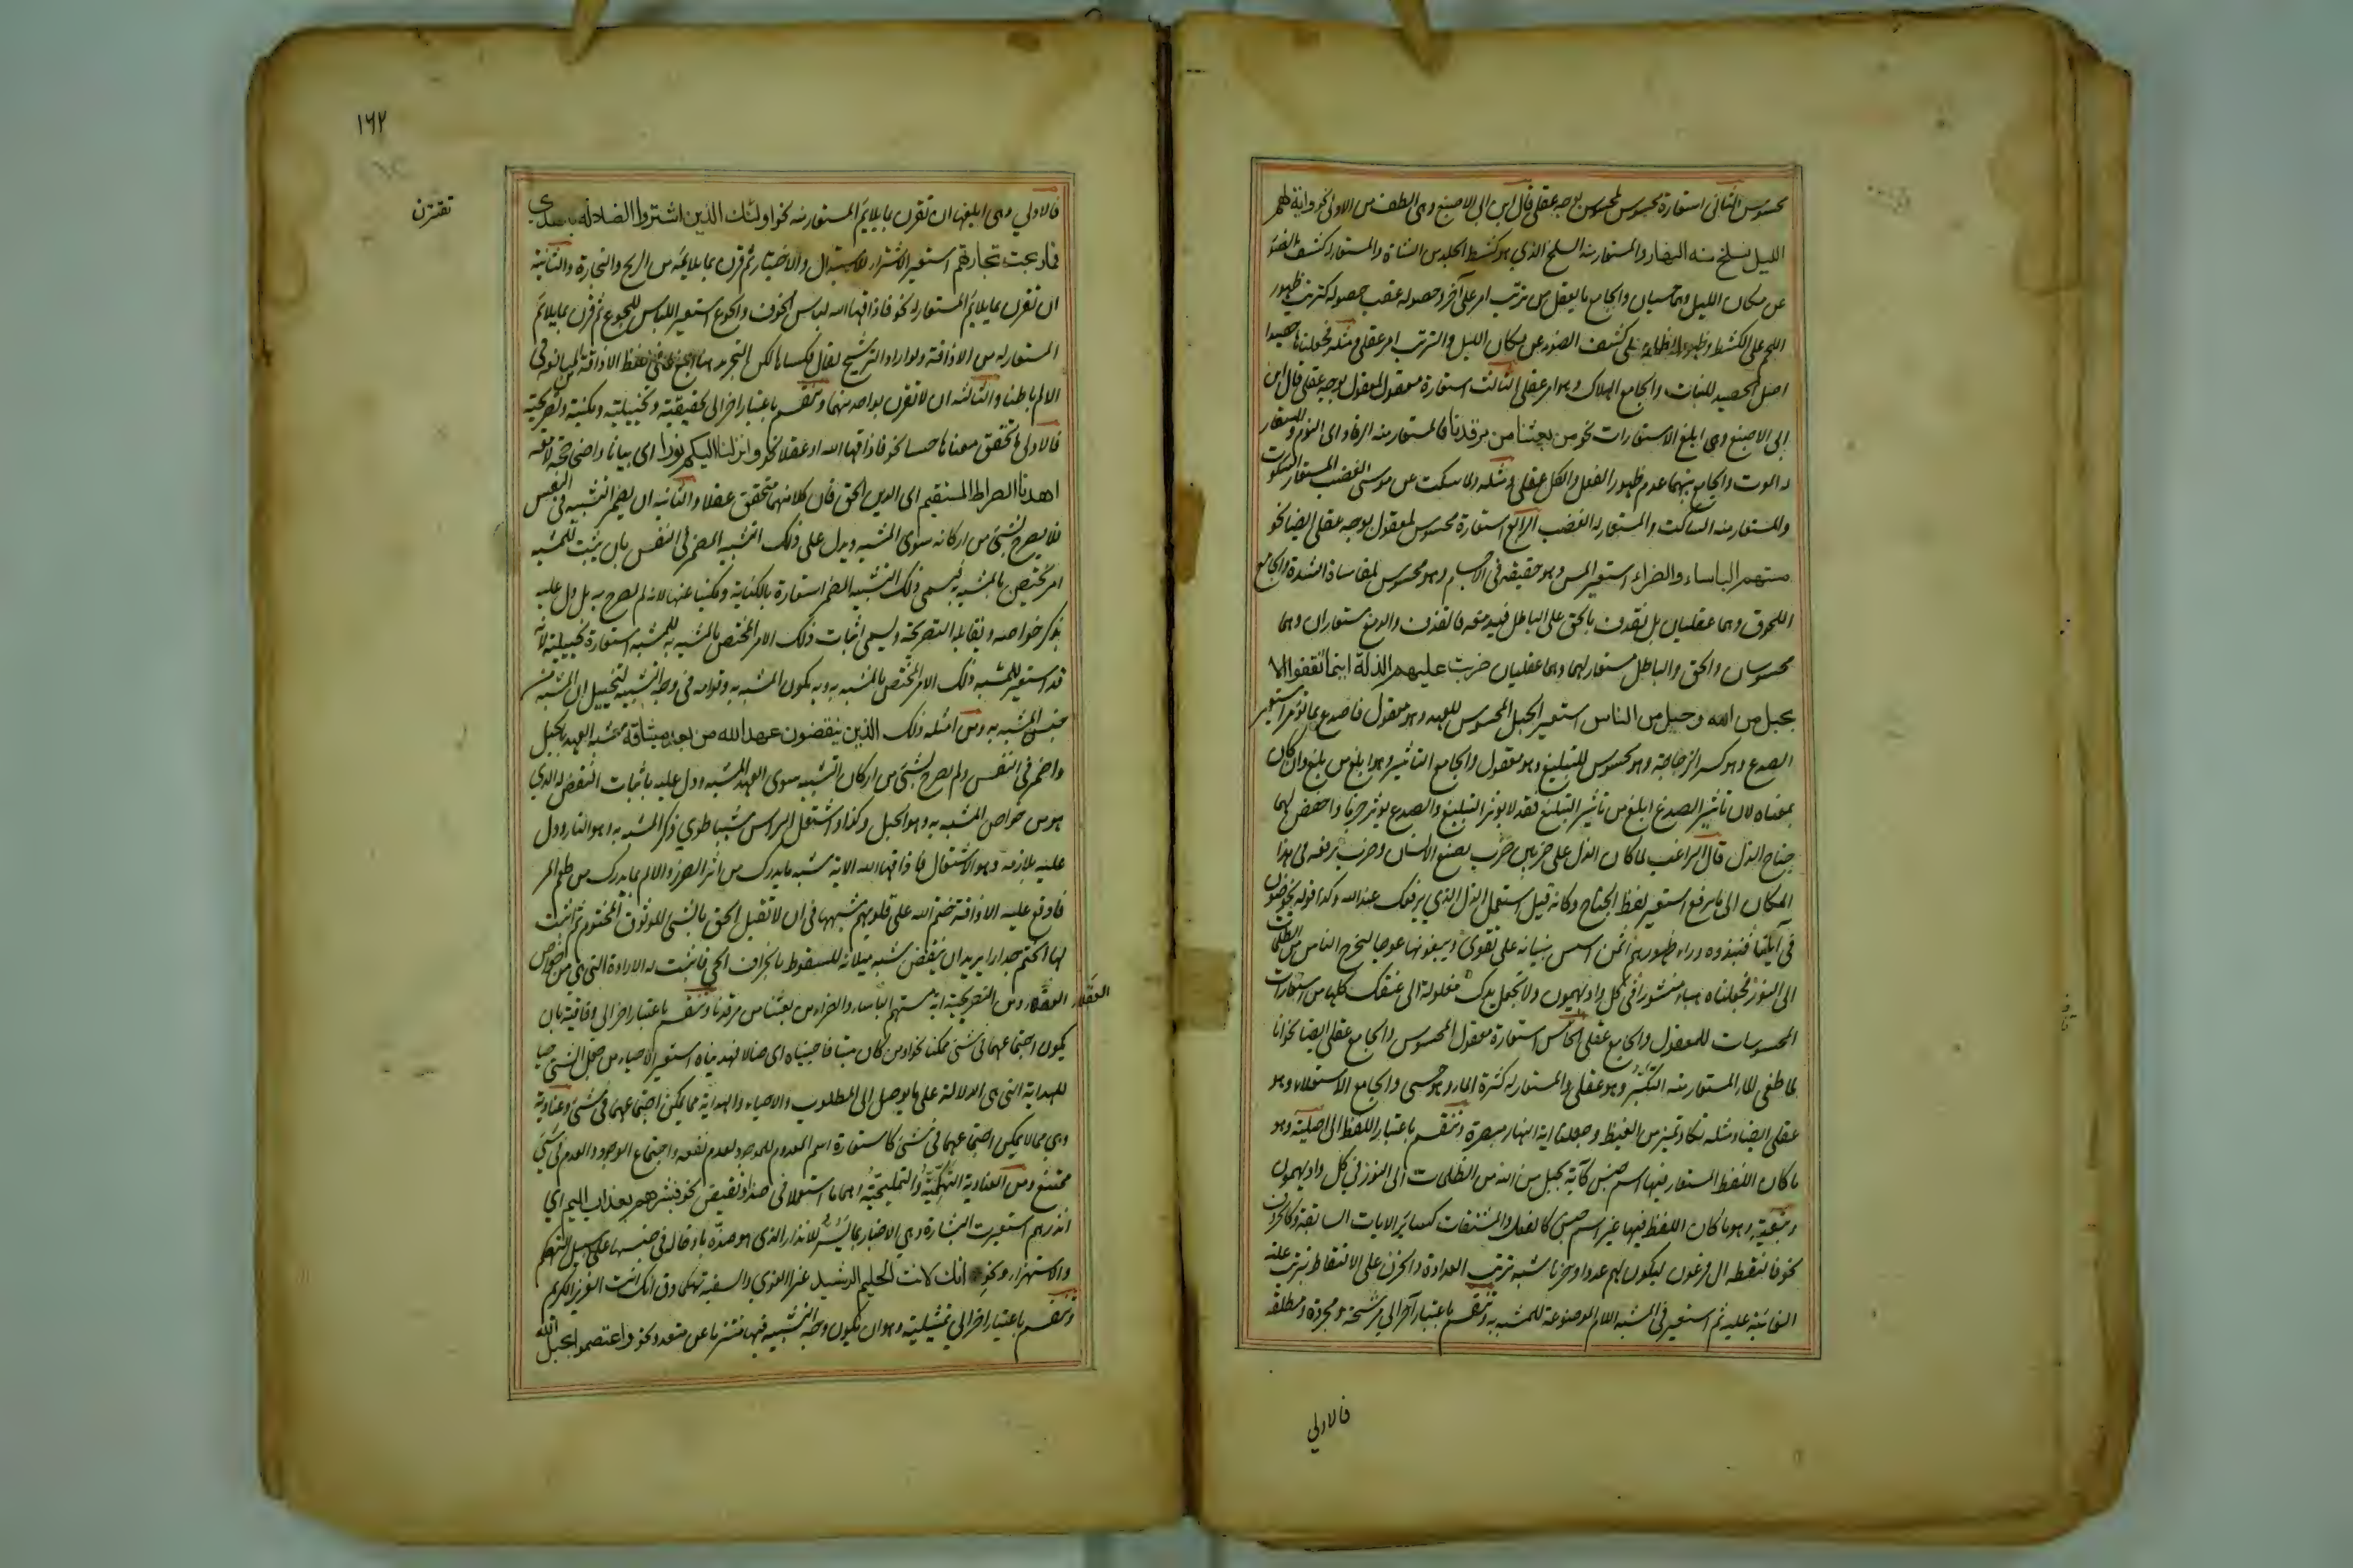 محسوس الثانى استعارة محسوس لمحسوس بوجه عقلى قال ابن ابى الاصبع وهى الطف من الاولى نحو واية لهم
الليل نسلخ منه النهار والمستعار منه السلخ الذي هو كشط الجلد من الشاة والمستعار له كشف الضوء
عن مكان الليل وهما حسيان والجامع ما يعقل من ترتب امر على آخر وحصوله عقب حصوله كترتب ظهور
اللحم على الكشط وظهور الظلمة على كشف الضوء عن مكان الليل والترتب امر عقلى ومثله فجعلناها حصيدا
اصل الحصيد للنبات والجامع الهلاك وهو امر عقلى الثالث استعارة معقول لمعقول بوجه عقلى قال ابن
ابى الاصبع وهى ابلغ الاستعارات نحو من بعثنا من مرقدنا فالمستعار منه الرقاد اى النوم والمستعار
له الموت والجامع بينهما عدم ظهور الفعل والكل عقلى ومثله ولما سكت عن موسى الغضب المستعار السكوت
والمستعار منه الساكت والمستعار له الغضب الرابع استعارة محسوس لمعقول بوجه عقلى ايضا نحو
مستهم الباساء والضراء استعير المس وهو حقيقة فى الاجسام وهو محسوس لمقاساة الشدة والجامع
اللحوق وهما عقليان بل نقذف بالحق على الباطل فيدمغه فالقذف والدمغ مستعاران وهما
محسوسان والحق والباطل مستعار لهما وهما عقليان ضربت عليهم الذلة اينما ثقفوا الا
بحبل من الله وحبل من الناس استعير الحبل المحسوس للعهد وهو معقول فاصدع بما تؤمر استعير
الصدع وهو كسر الزجاجة وهو محسوس للتبليغ وهو معقول والجامع التاثير وهو ابلغ من بلغ وان كان
بمعناه لان تأثير الصدع ابلغ من تأثير التبليغ فقد لا يوثر التبليغ والصدع يوثر جزما واخفض لهما
جناح الذل قال الراغب لما كان الذل على ضربين ضرب يضع الانسان وضرب يرفعه وقصد فى هذا
المكان الى ما يرفع استعير لفظ الجناح وكانه قيل استعمل الذل الذي يرفعك عند الله وكذا قوله يخوضون
فى آياتنا فنبذوه وراء ظهورهم افمن اسس بنيانه على تقوى ويبغونها عوجا ليخرج الناس من الظلمات
الى النور فجعلناه هباء منثورا فى كل واد يهيمون ولا تجعل يدك مغلولة الى عنقك كلها من استعارات
المحسوسات للمعقول والجامع عقلى الخامس استعارة معقول لمحسوس والجامع عقلى ايضا نحو انا
لما طغى الماء المستعار منه التكبر وهو عقلى والمستعار له كثرة الماء وهو حسى والجامع الاستعلاء وهو
عقلى ايضا ومثله تكاد تميز من الغيظ وجعلنا اية النهار مبصرة وتنقسم باعتبار اللفظ الى اصلية وهو
ما كان اللفظ المستعار فيها اسم جنس كآية بحبل من الله من الظلمات الى النور فى كل واد يهيمون
وتبعية وهو ما كان اللفظ فيها غير اسم جنس كالفعل والمشتقات كسائر الايات السابقة وكالحروف
نحو فالتقطه ال فرعون ليكون لهم عدوا وحزنا شبه ترتب العداوة والحزن على الالتقاط بترتب علته
الغائبة عليه ثم استعير فى المشبه اللام الموضوعة للمشبه به وتنقسم باعتبار آخر الى مرشحة ومجردة ومطلقة
فالاولي
١٦٢
تقترن
فالاولي وهى ابلغها ان تقرن بما يلايم المستعار منه نحو اولئك الذين اشتروا الضلالة بالهدى
فما ربحت تجارتهم استعير الاشتراء للاستبدال والاختيار ثم قرن بما يلايمه من الربح والتجارة والثانية
ان تقرن بما يلايم المستعار له نحو فاذاقها الله لباس الجوع والخوف استعير اللباس للجوع ثم قرن بما يلايم
المستعار له من الاذاقة ولو اراد الترشيح لقال فكساها لكن التجريد هنا ابلغ لما فى لفظ الاذاقة من المبالغة فى
الالم باطنا والثالثة ان لا تقرن بواحد منهما وتنقسم باعتبار اخر الى تحقيقية وتخييلية ومكنية وتصريحية
فالاولى ما تحقق معناها حسا نحو فاذاقها الله او عقلا نحو وانزلنا اليكم نورا اى بيانا واضحا وحجة لامعة
اهدنا الصراط المستقيم اى الدين الحق فان كلا منهما متحقق عقلا والثانية ان يضمر التشبيه فى النفس
فلا يصرح بشئ من اركانه سوى المشبه ويدل على ذلك التشبيه المضمر فى النفس بان يثبت للمشبه
امر يختص بالمشبه به يسمى ذلك التشبيه المضمر استعارة بالكناية ومكنيا عنها لانه لم يصرح به بل دل عليه
بذكر خواصه ويقابله التصريحية ويسمى اثبات ذلك الامر المختص بالمشبه به للمشبه استعارة تخييلية لانه
قد استعير للمشبه ذلك الامر المختص بالمشبه به وبه يكون المشبه به وقوامه فى وجه الشبه لتخييل ان المشبه من
جنس المشبه به ومن امثلة ذلك الذين ينقضون عهد الله من بعد ميثاقه شبه العهد بالحبل
واضمر فى النفس ولم يصرح بشئ من اركان التشبيه سوى العهد المشبه ودل عليه باثبات النقض له الذي
هو من خواص المشبه به وهو الحبل وكذا واشتعل الراس شيبا طوي ذكر المشبه به وهو النار ودل
عليه بلازمه وهو الاشتعال فاذاقها الله الاية شبه ما يدرك من اثر الضرر والالم بما يدرك من طعم المر
فاوقع عليه الاذاقة ختم الله على قلوبهم شبهها فى ان لا تقبل الحق بالشئ الموثوق المختوم ثم اثبت
لها الختم جدارا يريد ان ينقض شبه ميلانه للسقوط بانحراف الحي فاثبت له الارادة التى هى من خواص
العقلاء ومن التصريحية اية مستهم الباساء والضراء من بعثنا من مرقدنا وتنقسم باعتبار اخر الى وفاقية بان
يكون اجتماعهما فى شئ ممكنا نحو او من كان ميتا فاحييناه اى ضالا فهديناه استعير الاحياء من جعل الشئ حيا
للهداية التى هى الدلالة على ما يوصل الى المطلوب والاحياء والهداية مما يمكن اجتماعهما فى شئ وعنادية
وهى مما لا يمكن اجتماعهما فى شئ كاستعارة اسم المعدوم للموجود لعدم نفعه واجتماع الوجود والعدم فى شئ
ممتنع ومن العنادية التهكمية والتمليحية وهما ما استعملا فى ضد او نقيض نحو فبشرهم بعذاب اليم اي
انذرهم استعيرت البشارة وهى الاخبار بما يسر للانذار الذى هو ضده بادخاله فى جنسها على سبيل التهكم
والاستهزاء ونحو انك لانت الحليم الرشيد عنوا الغوي والسفيه تهكما وذق انك انت العزيز الكريم
وتنقسم باعتبار اخر الي تمثيلية وهو ان يكون وجه التشبيه فيها منتزعا من متعدد نحو واعتصموا بحبل الله